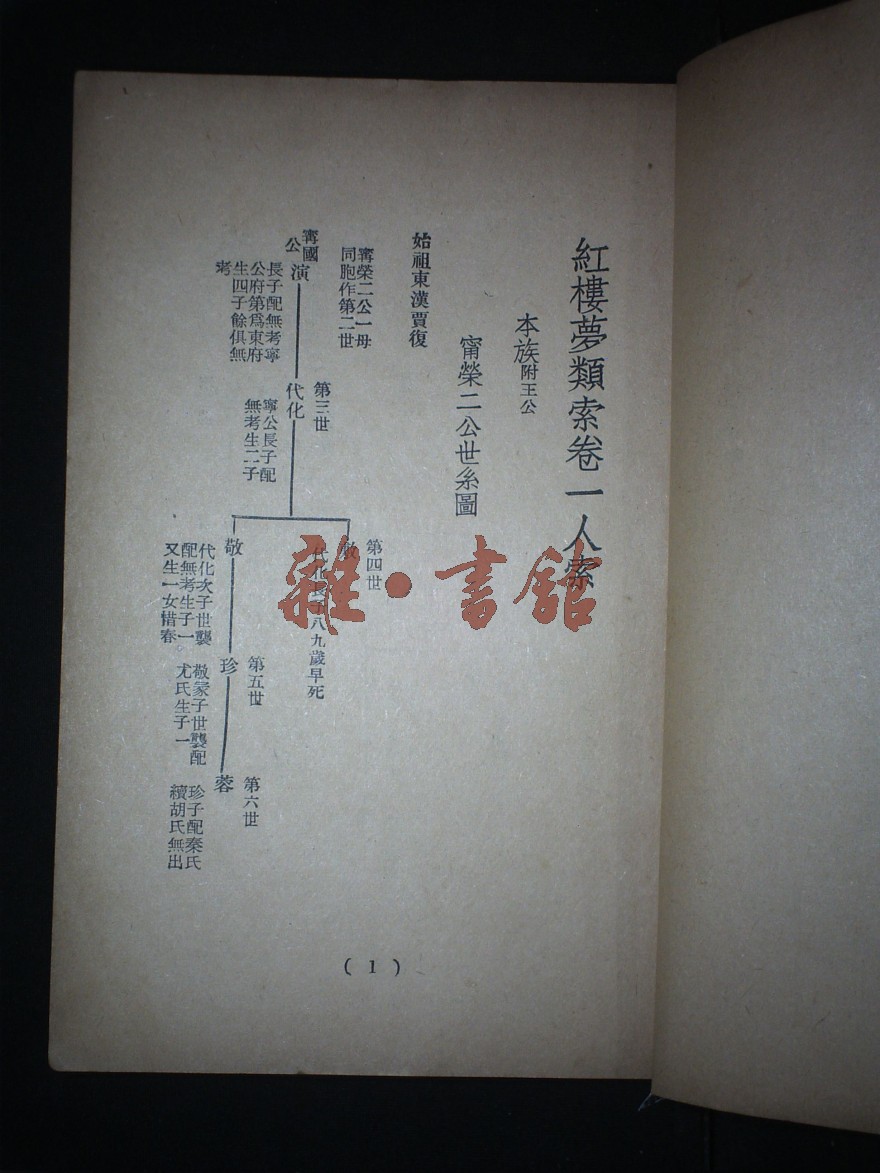 紅樓夢類索卷一人索
本族附王公
甯榮二公世系圖
始祖東漢賈復
甯榮二公一母
同胞作第二世
甯國
公
演
長子配無考寧
公府第爲東府
生四子餘俱無
考
第三世
代化
寧公長子配
無考生二子
第四世
敷
代化長子八九歲早死
敬
代化次子世襲
配無考生子一
又生一女惜春
第五世
珍
敬蒙子世襲配
尤氏生子一
第六世
蓉
珍子配秦氏
續胡氏無出
( 1 )
雜·書館